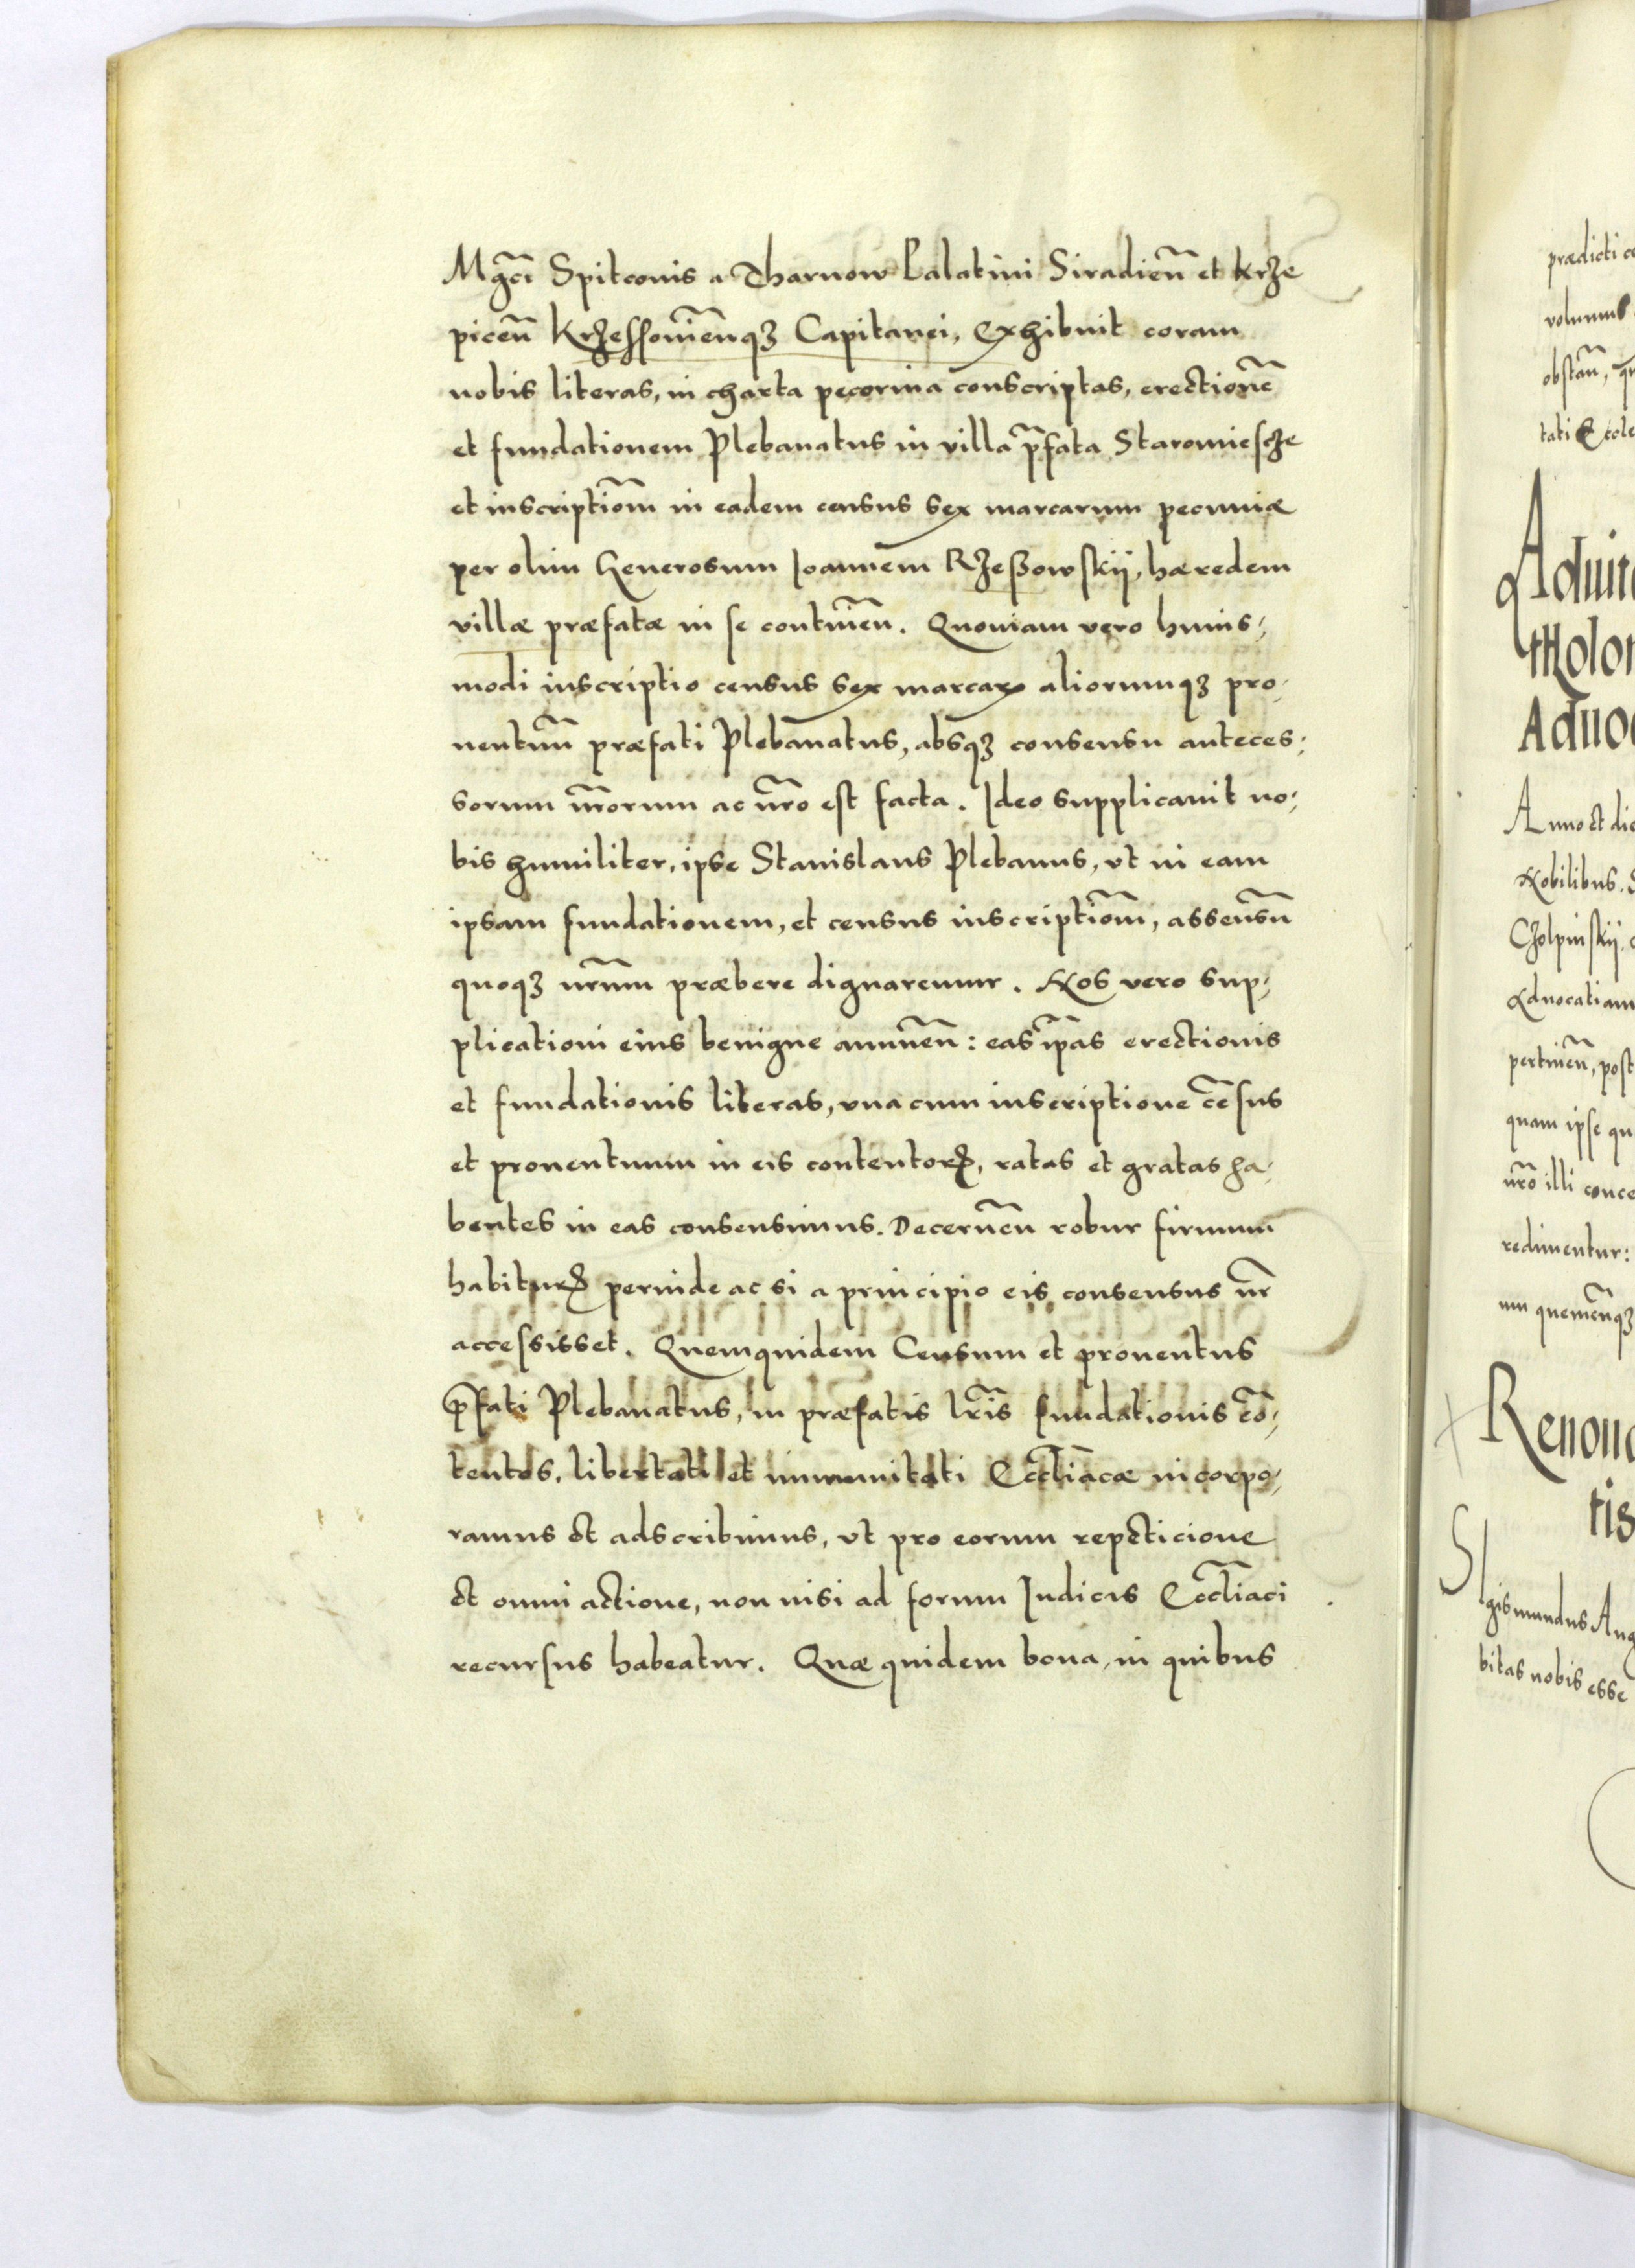 Mgci Spitconis a Tharnow Palatini Siradien̄ et Krze
picen̄ Krzessoviēnqȝ Capitanei, Exhibuit coram
nobis literas, in charta pecorina conscriptas, erectionē
et fundationem Plebanatus in villa p̄fata Staromiescze
et inscriptiōm in eadem census sex marcarum pecuniæ
per olim Generosum Joannem Rzeßowskij, hæredem
villæ præfatæ in se continēn. Quoniam vero huius-
modi inscriptio census sex marcarꝝ aliorumqȝ pro-
uentuū præfati Plebanatus, absqȝ consensu anteces-
sorum nr̄orum ac nr̄o est facta. Ideo supplicauit no-
bis humiliter, ipse Stanislaus Plebanus, vt in eam
ipsam fundationem, et census inscriptiōm, assensū
quoqȝ nrūm præbere dignaremur. Nos vero sup-
plicationi eius benigne annuēn: eas ip̄as erectionis
et fundationis literas, vna cum inscriptione cēsus
et prouentuum in eis contentorꝝ, ratas et gratas ha-
bentes in eas consensimus. Decernēn robur firmum
habiturꝝ perinde ac si a principio eis consensus nr̄
accessisset. Quemquidem Censum et prouentus
p̄fati Plebanatus, in præfatis lr̄is fundationis cō-
tentos, libertati et immunitati Eccl̄iacæ incorpo-
ramus et adscribimus, vt pro eorum repeticione
et omni actione, non nisi ad forum Iudicis Eccl̄iaci
recursus habeatur. Quæ quidem bona, in quibus
prædicti
volumus
obstan̄,
tati
Aduoc
Anno et die
Nobilibus.
Czolpinskij.
Aduocatiam
pertinēn, post
quam ipse
nr̄o illi
redimentur:
quemcūqȝ
tis
Sigismundus Aug
bitas nobis esse